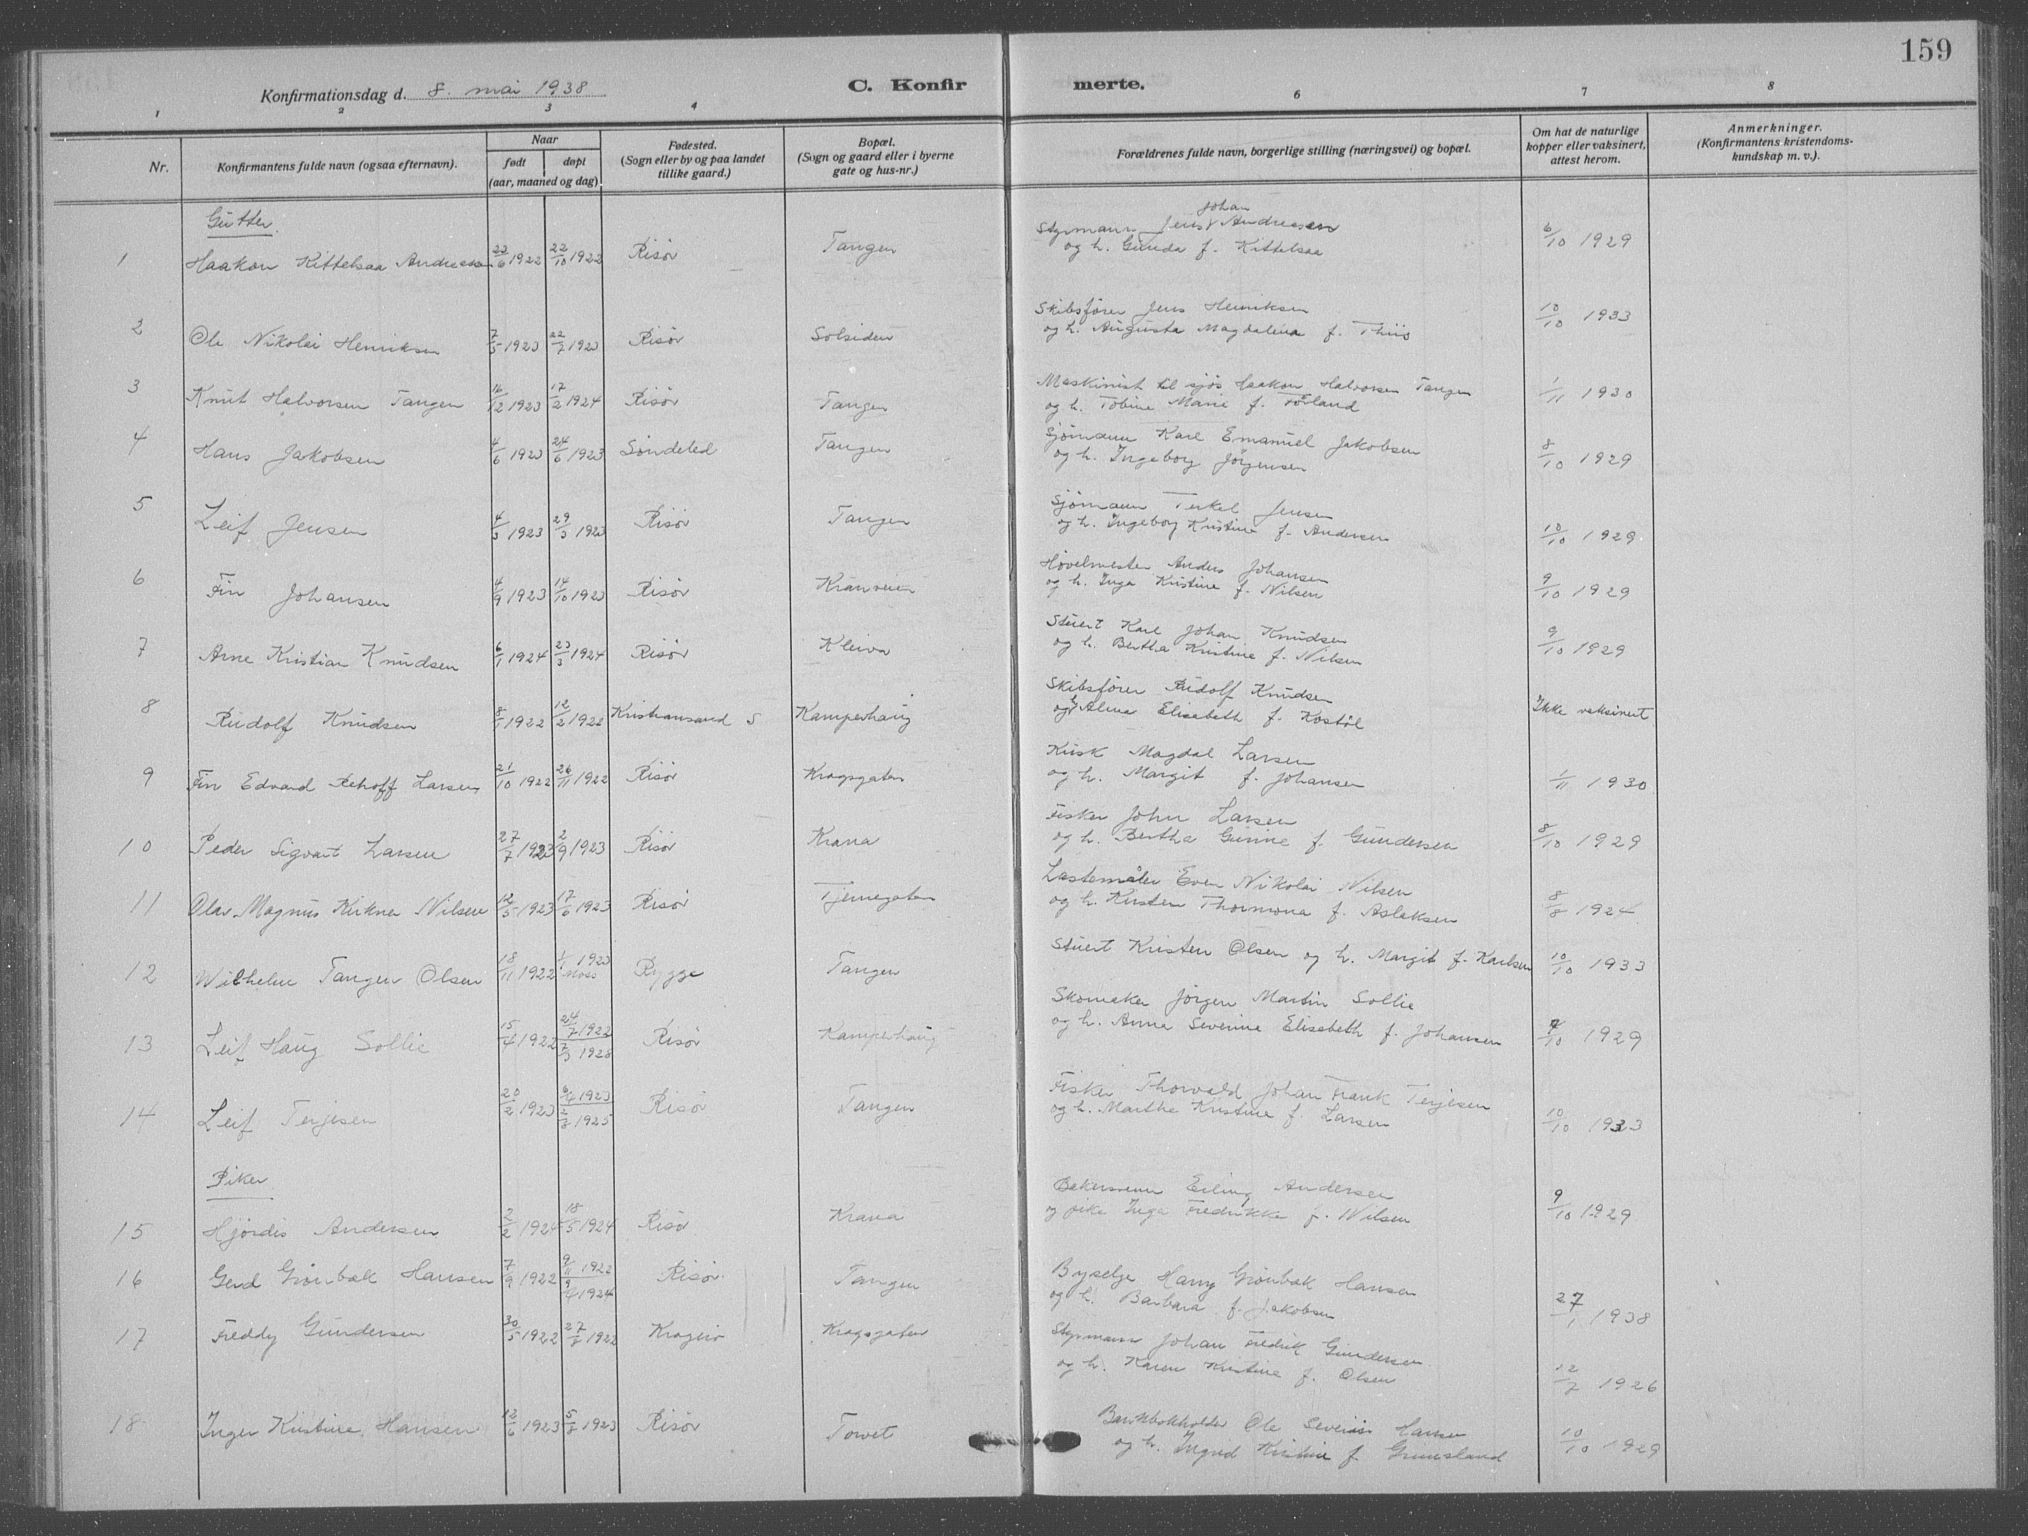 159
Konfirmationsdag d. 8. mai 1938
C. Konfir merte.
1 2 3 4 6 7 8
Nr.
Konfirmantens fulde navn (ogsaa efternavn).
Naar
født døpt
(aar, maaned og dag)
Fødested.
(Sogn eller by og paa landet
tillike gaard.)
Bopæl.
(Sogn og gaard eller i byerne
gate og hus-nr.)
Forældrenes fulde navn, borgerlige stilling (næringsvei) og bopæl.
Om hat de naturlige
kopper eller vaksinert,
attest herom.
Anmerkninger.
(Konfirmantens kristendoms-
kundskap m. v.).
Gutter
Johan
1 Haakon Kittelsaa Andreassen 23/6 1922 22/10 1922 Risør Tangen Styrmann Jens Andreassen 6/10 1929
og h. Gunda f. Kittelsaa
2 Ole Nikolai Henriksen 7/5 1923 22/7 1923 Risør Solsiden Skibsfører Jens Henriksen 10/10 1933
og h. Augusta Magdalena f. Thiis
3 Knut Halvorsen Tangen 16/12 1923 17/2 1924 Risør Tangen Maskinist til sjøs Haakon Halvorsen Tangen 1/11 1930
og h. Tobine Marie f. Törland
4 Hans Jakobsen 4/6 1923 24/6 1923 Søndeled Tangen Sjømann Karl Emanuel Jakobsen 8/10 1929
og h. Ingeborg Jörgensen
5 Leif Jensen 4/3 1923 29/3 1923 Risør Tangen Sjømann Terkel Jensen 10/10 1929
og h. Ingeborg Kristine f. Andersen
6 Fin Johansen 4/9 1923 14/10 1923 Risør Kranveien Høvelmester Anders Johansen 9/10 1929
og h. Inga Kristine f. Nilsen
7 Arne Kristian Knudsen 6/1 1924 23/3 1924 Risør Kleiva Stuert Karl Johan Knudsen 9/10 1929
og h. Bertha Kristine f. Nilsen
8 Rudolf Knudsen 8/1 1922 12/2 1922 Kristiansand S Kamperhaug Skibsfører Rudolf Knudsen Ikke vaksinert
og h. Alma Elisabeth f. Kostöl
9 Fin Edvard Rehoff Larsen 21/10 1922 26/11 1922 Risør Kragsgaten Kusk Magdal Larsen 1/11 1930
og h. Margit f. Johansen
10 Peder Sigvart Larsen 27/7 1923 2/9 1923 Risør Krana Fisker John Larsen 8/10 1929
og h. Bertha Gurine f. Gundersen
11 Olav Magnus Kirkner Nilsen 12/5 1923 17/6 1923 Risør Tjernegaten Lastemåler Even Nikolai Nilsen 8/8 1924
og h. Kirsten Thormona f. Aslaksen
12 Wilhelm Tangen Olsen 18/11 1922 1/1 1923 Rygge Tangen Stuert Kristen Olsen og h. Margit f. Karlsen 10/10 1933
Moss
13 Leif Haug Sollie 15/4 1922 24/7 1922 Risør Kamperhaug Skomaker Jörgen Martin Sollie 9/10 1929
7/3 1928 og h. Anna Severine Elisabeth f. Johansen
14 Leif Terjesen 20/2 1923 6/4 1923 Risør Tangen Fisker Thorvald Johan Frank Terjesen 10/10 1933
2/3 1925 og h. Marthe Kristine f. Larsen
Piker
15 Hjördis Andersen 2/2 1924 18/5 1924 Risør Krana Bakersvenn Erling Andersen 9/10 1929
og pike Inga Fredrikke f. Nilsen
16 Gerd Grönbæk Hansen 7/9 1922 9/11 1922 Risør Tangen Byselge Harry Grönbæk Hansen 27/1 1938
9/4 1924 og h. Barbara f. Jakobsen
17 Freddy Gundersen 30/5 1922 27/8 1922 Kragerö Kragsgaten Styrmann Johan Fredrik Gundersen 12/7 1926
og h. Karen Kristine f. Olsen
18 Inger Kristine Hansen 12/6 1923 5/8 1923 Risør Torvet Bankbokholder Ole Severin Hansen 10/10 1929
og h. Ingrid Kristine f. Grimsland